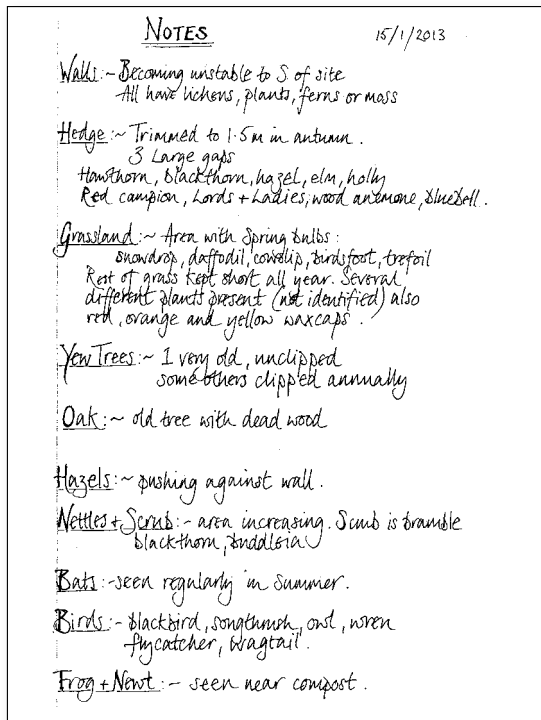 NOTES 15/1/2013
Walls:~ Becoming unstable to S of site
All have lichens, plants, ferns or moss
Hedge:~ Trimmed to 1.5m in autumn.
3 Large gaps
Hawthorn, blackthorn, hazel, elm, holly
Red campion, Lords + Ladies, wood anemone, bluebell.
Grassland:~ Area with Spring bulbs:
snowdrop, daffodil, cowslip, birdsfoot, trefoil
Rest of grass kept short all year. Several
different plants present (not identified) also
red, orange and yellow waxcaps.
Yew Trees:~ 1 very old, unclipped
some others clipped annually
Oak:~ old tree with dead wood
Hazels:~ pushing against wall.
Nettles + Scrub:- area increasing. Scrub is bramble
blackthorn, buddleia
Bats:-seen regularly in Summer.
Birds:- blackbird, songthrush, owl, wren
flycatcher, wagtail.
Frog + Newt:- seen near compost.